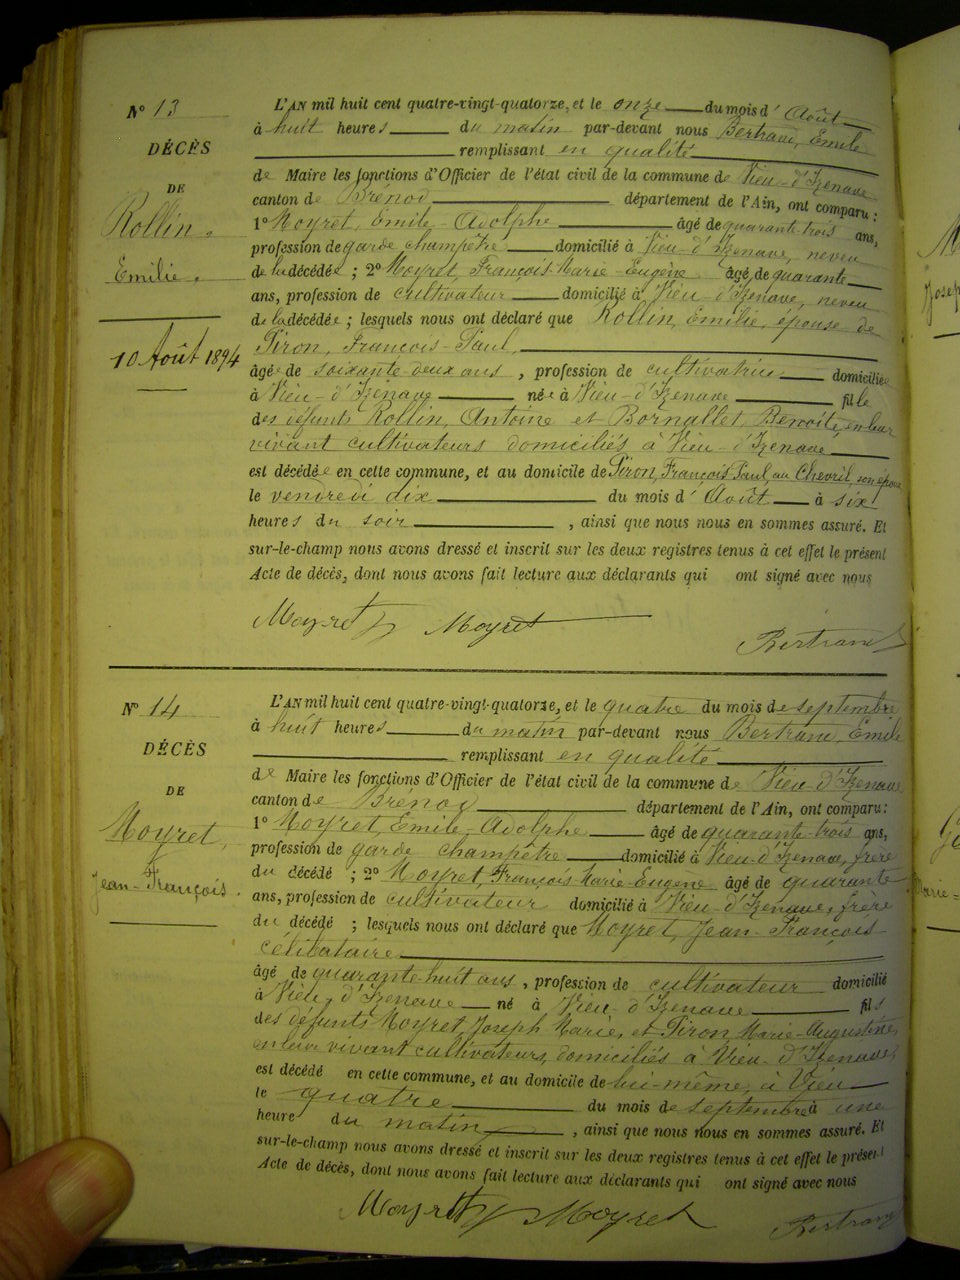 N° 13
DÉCÈS
DE
Rollin
Emilie.
10 Août 1894
L'AN mil huit cent quatre-vingt-quatorze, et le onze du mois d'Août
à huit heures du matin par-devant nous Bertrand, Emile
remplissant en qualité
de Maire les fonctions d'Officier de l'état civil de la commune de Vieu-d'Izenave
canton de Brénod département de l'Ain, ont comparu :
1° Moyret, Emile-Adolphe âgé de quarante trois ans,
profession de garde champêtre domicilié à Vieu-d'Izenave, neveu
de la décédée ; 2° Moyret, François Marie-Eugène âgé de quarante
ans, profession de cultivateur domicilié à Vieu-d'Izenave, neveu
de la décédée ; lesquels nous ont déclaré que Rollin, Emilie, épouse de
Piron, François-Paul,
âgée de soixante deux ans , profession de cultivatrice domiciliée
à Vieu-d'Izenave née à Vieu-d'Izenave fille
des défunts Rollin, Antoine et Bornallet, Benoite, en leur
vivant cultivateurs domiciliés à Vieu-d'Izenave,
est décédée en cette commune, et au domicile de Piron, François Paul, au Chevril, son époux
le vendredi dix du mois d'Août à six
heures du soir , ainsi que nous nous en sommes assuré. Et
sur-le-champ nous avons dressé et inscrit sur les deux registres tenus à cet effet le présent
Acte de décès, dont nous avons fait lecture aux déclarants qui ont signé avec nous
Moyret Moyret
Bertrand
N° 14
DÉCÈS
DE
Moyret,
Jean-François.
L'AN mil huit cent quatre-vingt-quatorze, et le quatre du mois de septembre
à huit heures du matin par-devant nous Bertrand, Emile
remplissant en qualité
de Maire les fonctions d'Officier de l'état civil de la commune de Vieu-d'Izenave
canton de Brénod département de l'Ain, ont comparu :
1° Moyret, Emile, Adolphe âgé de quarante-trois ans,
profession de garde champêtre domicilié à Vieu-d'Izenave, frère
du décédé ; 2° Moyret, François Marie-Eugène âgé de quarante
ans, profession de cultivateur domicilié à Vieu-d'Izenave, frère
du décédé ; lesquels nous ont déclaré que Moyret, Jean-François
célibataire
âgé de quarante huit ans , profession de cultivateur domicilié
à Vieu, d'Izenave né à Vieu-d'Izenave fils
des défunts Moyret, Joseph Marie, et Piron, Marie-Augustine,
en leur vivant cultivateurs, domiciliés à Vieu-d'Izenave,
est décédé en cette commune, et au domicile de lui-même, à Vieu
le quatre du mois de septembre à une
heure du matin , ainsi que nous nous en sommes assuré. Et
sur-le-champ nous avons dressé et inscrit sur les deux registres tenus à cet effet le présent
Acte de décès, dont nous avons fait lecture aux déclarants qui ont signé avec nous
Moyret Moyret
Bertrand